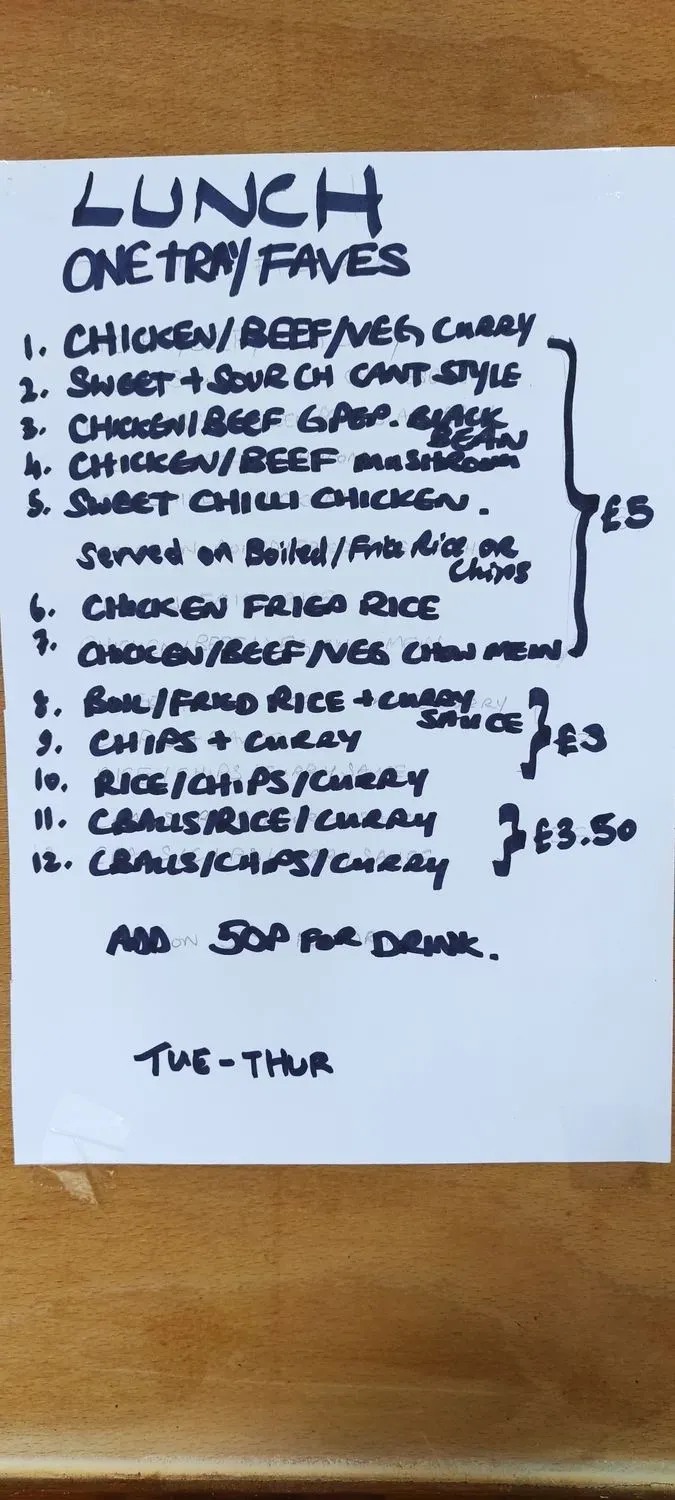 LUNCH
ONE TRAY/FAVES
1. CHICKEN/BEEF/VEG CURRY
2. SWEET + SOUR CH CANT STYLE
3. CHICKEN/BEEF G PEP. BLACK
BEAN
4. CHICKEN/BEEF MUSHROOM
5. SWEET CHILLI CHICKEN.
£5
Served on Boiled/Fried Rice or
Chips
6. CHICKEN FRIED RICE
7. CHICKEN/BEEF/VEG CHOW MEIN
8. BOIL/FRIED RICE + CURRY
SAUCE
9. CHIPS + CURRY
£3
10. RICE/CHIPS/CURRY
11. CBALLS/RICE/CURRY
£3.50
12. CBALLS/CHIPS/CURRY
ADD 50P FOR DRINK.
TUE-THUR